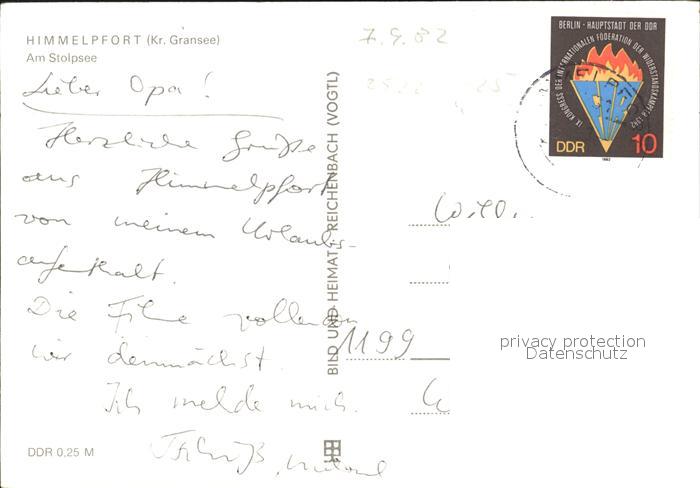 HIMMELPFORT (Kr. Gransee)
Am Stolpsee
7.9.82
Lieber Opa!
Herzliche Grüße
aus Himmelpfort
von meinem Urlaubs-
aufenthalt.
Die Filme vollenden
wir demnächst.
Ich melde mich.
Tschüß,
DDR 0,25 M
BILD UND HEIMAT REICHENBACH (VOGTL)
BERLIN - HAUPTSTADT DER DDR
IX. KONGRESS DER INTERNATIONALEN FÖDERATION DER WIDERSTANDSKÄMPFER
DDR 10
1982
1199
privacy protection
Datenschutz